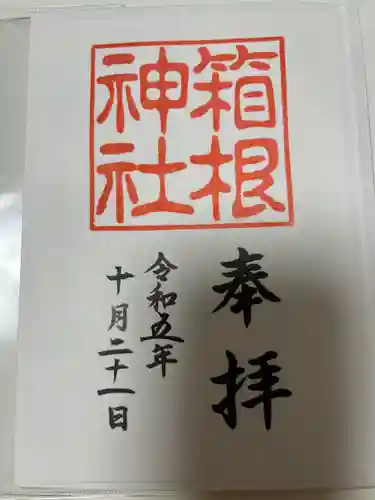 箱根
神社
奉拝
令和五年
十月二十一日